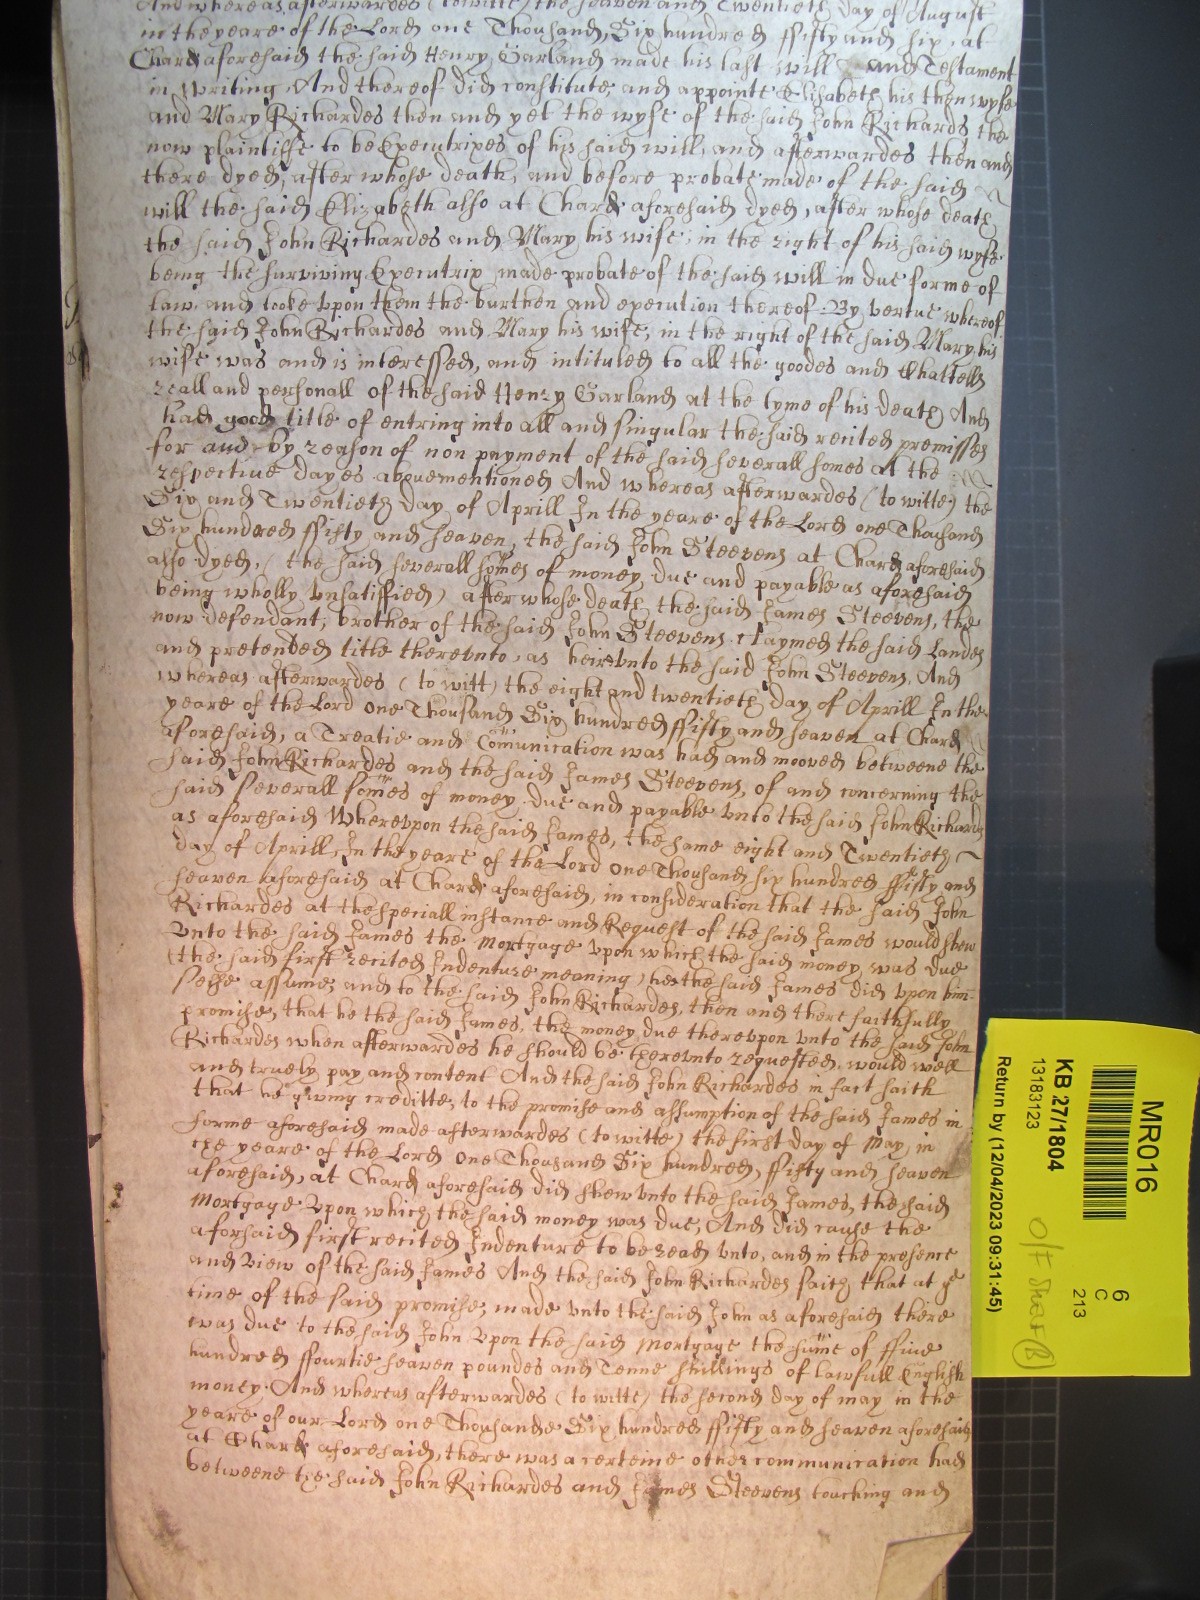 And whereas afterwardes (to witte) the seaven and Twentieth day of August
in the yeare of the Lord one Thousand, Six hundred ffifty and six, at
Chard aforesaid the said Henry Garland made his last will and Testament
in writing And thereof did constitute and appointe Elizabeth his then wyfe
and Mary Richardes then and yet the wyfe of the said John Richards the
now plaintiffe to be Executrixes of his said will, and afterwardes then and
there dyed, after whose death, and before probate made of the said
will the said Elizabeth also at Chard aforesaid dyed, after whose death
the said John Richardes and Mary his wife, in the right of his said wyfe
being the surviving Executrix made probate of the said will in due forme of
law and tooke upon them the burthen and execution thereof By vertue whereof
the said John Richardes and Mary his wife, in the right of the said Mary his
wife was and is interessed, and intituled to all the goodes and Chattells
reall and personall of the said Henry Garland at the tyme of his death And
had good title of entring into all and singular the said recited premisses
for and by reason of non payment of the said severall somes at the
respective dayes abovementioned And whereas afterwardes (to witte) the
Six and Twentieth day of Aprill In the yeare of the Lord one Thousand
Six hundred ffifty and seaven, the said John Steevens at Chard aforesaid
also dyed, (the said severall somes of money due and payable as aforesaid
being wholly unsatisfied) after whose death the said James Steevens, the
now defendant, brother of the said John Steevens claymed the said Landes
and pretended title thereunto, as heire unto the said John Steevens. And
whereas afterwardes (to witt) the eight and twentieth day of Aprill In the
yeare of the Lord One Thousand Six hundred ffifty and seaven at Chard
aforesaid, a Treatie and Comunication was had and mooved betweene the
said John Richardes and the said James Steevens, of and concerning the
said severall somes of money due and payable unto the said John Richards
as aforesaid Whereupon the said James, the same eight and Twentieth
day of Aprill, In the yeare of the Lord One Thousand six hundred ffifty and
seaven aforesaid at Chard aforesaid, in consideration that the said John
Richardes at the speciall instance and Request of the said James would shew
unto the said James the Mortgage upon which the said money was due
(the said first recited Indenture meaning) hee the said James did upon him-
selfe assume, and to the said John Richardes, then and there faithfully
promise, that he the said James, the money due thereupon unto the said John
Richardes when afterwardes he should be thereunto requested, would well
and truely pay and content And the said John Richardes in fact saith
that he giving creditte, to the promise and assumption of the said James in
forme aforesaid made afterwardes (to witte) the first day of May, in
the yeare of the Lord One Thousand Six hundred, ffifty and seaven
aforesaid, at Chard aforesaid did shew unto the said James, the said
Mortgage upon which the said money was due, And did cause the
aforsaid first recited Indenture to be read unto, and in the presence
and view of the said James And the said John Richardes saith that at ye
time of the said promise, made unto the said John as aforesaid there
was due to the said John upon the said Mortgage the sume of ffive
hundred ffourtie seaven poundes and Tenne shillings of lawfull English
money. And whereas afterwardes (to witte) the second day of may in the
yeare of our Lord one Thousande Six hundred ffifty and seaven aforesaid
at Chard aforesaid, there was a certeine other communication had
betweene the said John Richardes and James Steevens touching and
MR016
6
C
213
KB 27/1804
13183123
Return by (12/04/2023 09:31:45)